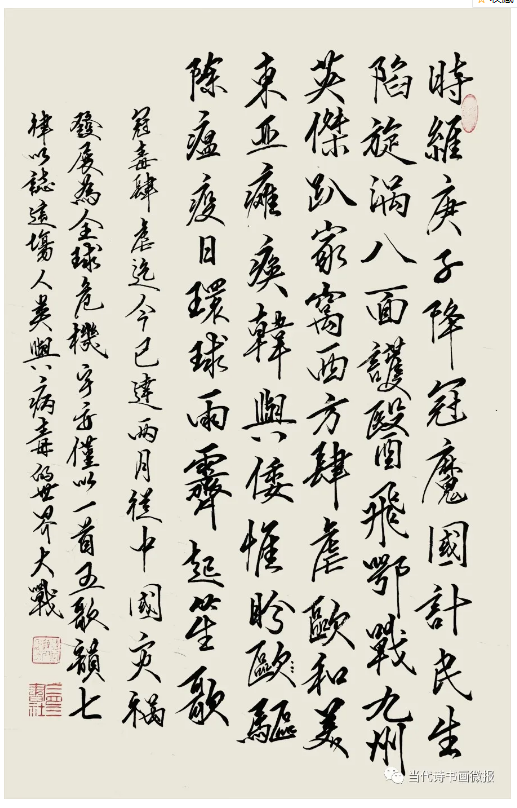 時維庚子降冠魔國計民生
陷旋渦八面護醫飛鄂戰九州
英傑趴家窩西方肆虐歐和美
東亞癱瘓韓與倭惟盼歐驅
除瘟疫日環球雨霽起笙歌
冠毒肆虐迄今已達兩月從中國灾禍
發展為全球危機僅以一首五歌韻七
律以誌這場人类與病毒的世界大戰
当代诗书画微报